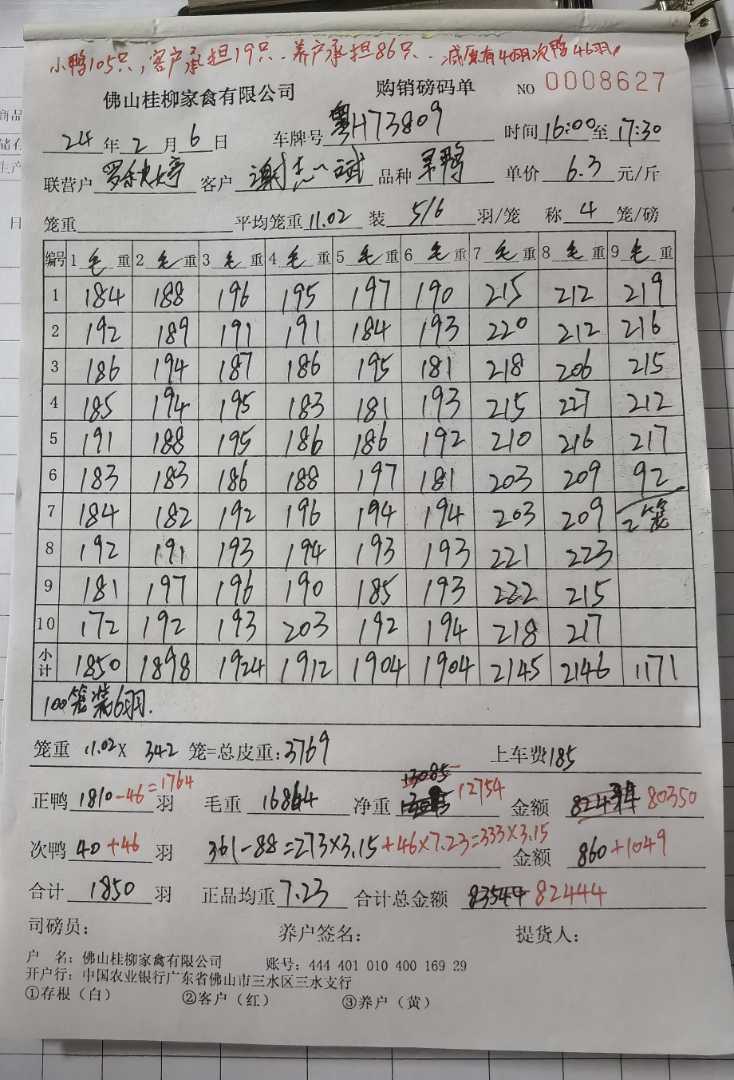 小鸭105只,客户承担19只.养户承担86只.减原有40羽次鸭46羽
佛山桂柳家禽有限公司 购销磅码单 NO 0008627
24 年 2 月 6 日 车牌号 粤H73809 时间 16:00 至 17:30
联营户 客户 谢志斌 品种 单价 6.3 元/斤
笼重 平均笼重 11.02 装 5/6 羽/笼 称 4 笼/磅
编号 1 毛 重 2 毛 重 3 毛 重 4 毛 重 5 毛 重 6 毛 重 7 毛 重 8 毛 重 9 毛 重
1 184 188 196 195 197 190 215 212 219
2 192 189 191 191 184 193 220 212 216
3 186 194 187 186 195 181 218 206 215
4 185 194 195 183 181 193 215 227 212
5 191 188 195 186 186 192 210 216 217
6 183 183 186 188 197 181 203 209 92
7 184 182 192 196 194 194 203 209 2笼
8 192 191 193 194 193 193 221 223
9 181 197 196 190 185 193 222 215
10 172 192 193 203 192 194 218 217
小计 1850 1898 1924 1912 1904 1904 2145 2146 1171
100笼装6羽.
笼重 11.02 X 342 笼=总皮重: 3769 上车费185
13085
正鸭 1810-46=1764 羽 毛重 16864 净重 12754 金额 80350
次鸭 40+46 羽 361-88=273×3.15+46×7.23=333×3.15 金额 860+1049
合计 1850 羽 正品均重 7.23 合计总金额 83544 82444
司磅员: 养户签名: 提货人:
户 名: 佛山桂柳家禽有限公司 账号: 444 401 010 400 169 29
开户行: 中国农业银行广东省佛山市三水区三水支行
①存根(白) ②客户(红) ③养户(黄)